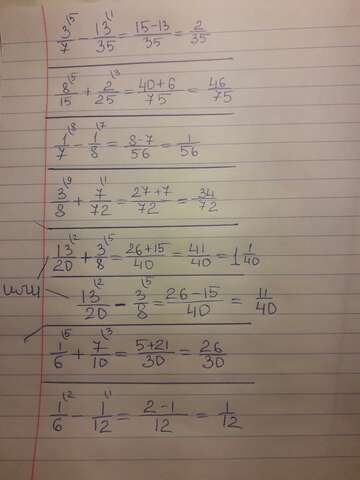 3/7 \5 - 13/35 \1 = 15-13/35 = 2/35
8/15 \5 + 2/25 \3 = 40+6/75 = 46/75
1/7 \8 - 1/8 \7 = 8-7/56 = 1/56
3/8 \9 + 7/72 \1 = 27+7/72 = 34/72
13/20 \2 + 3/8 \5 = 26+15/40 = 41/40 = 1 1/40
или 13/20 \2 - 3/8 \5 = 26-15/40 = 11/40
1/6 \5 + 7/10 \3 = 5+21/30 = 26/30
1/6 \2 - 1/12 \1 = 2-1/12 = 1/12